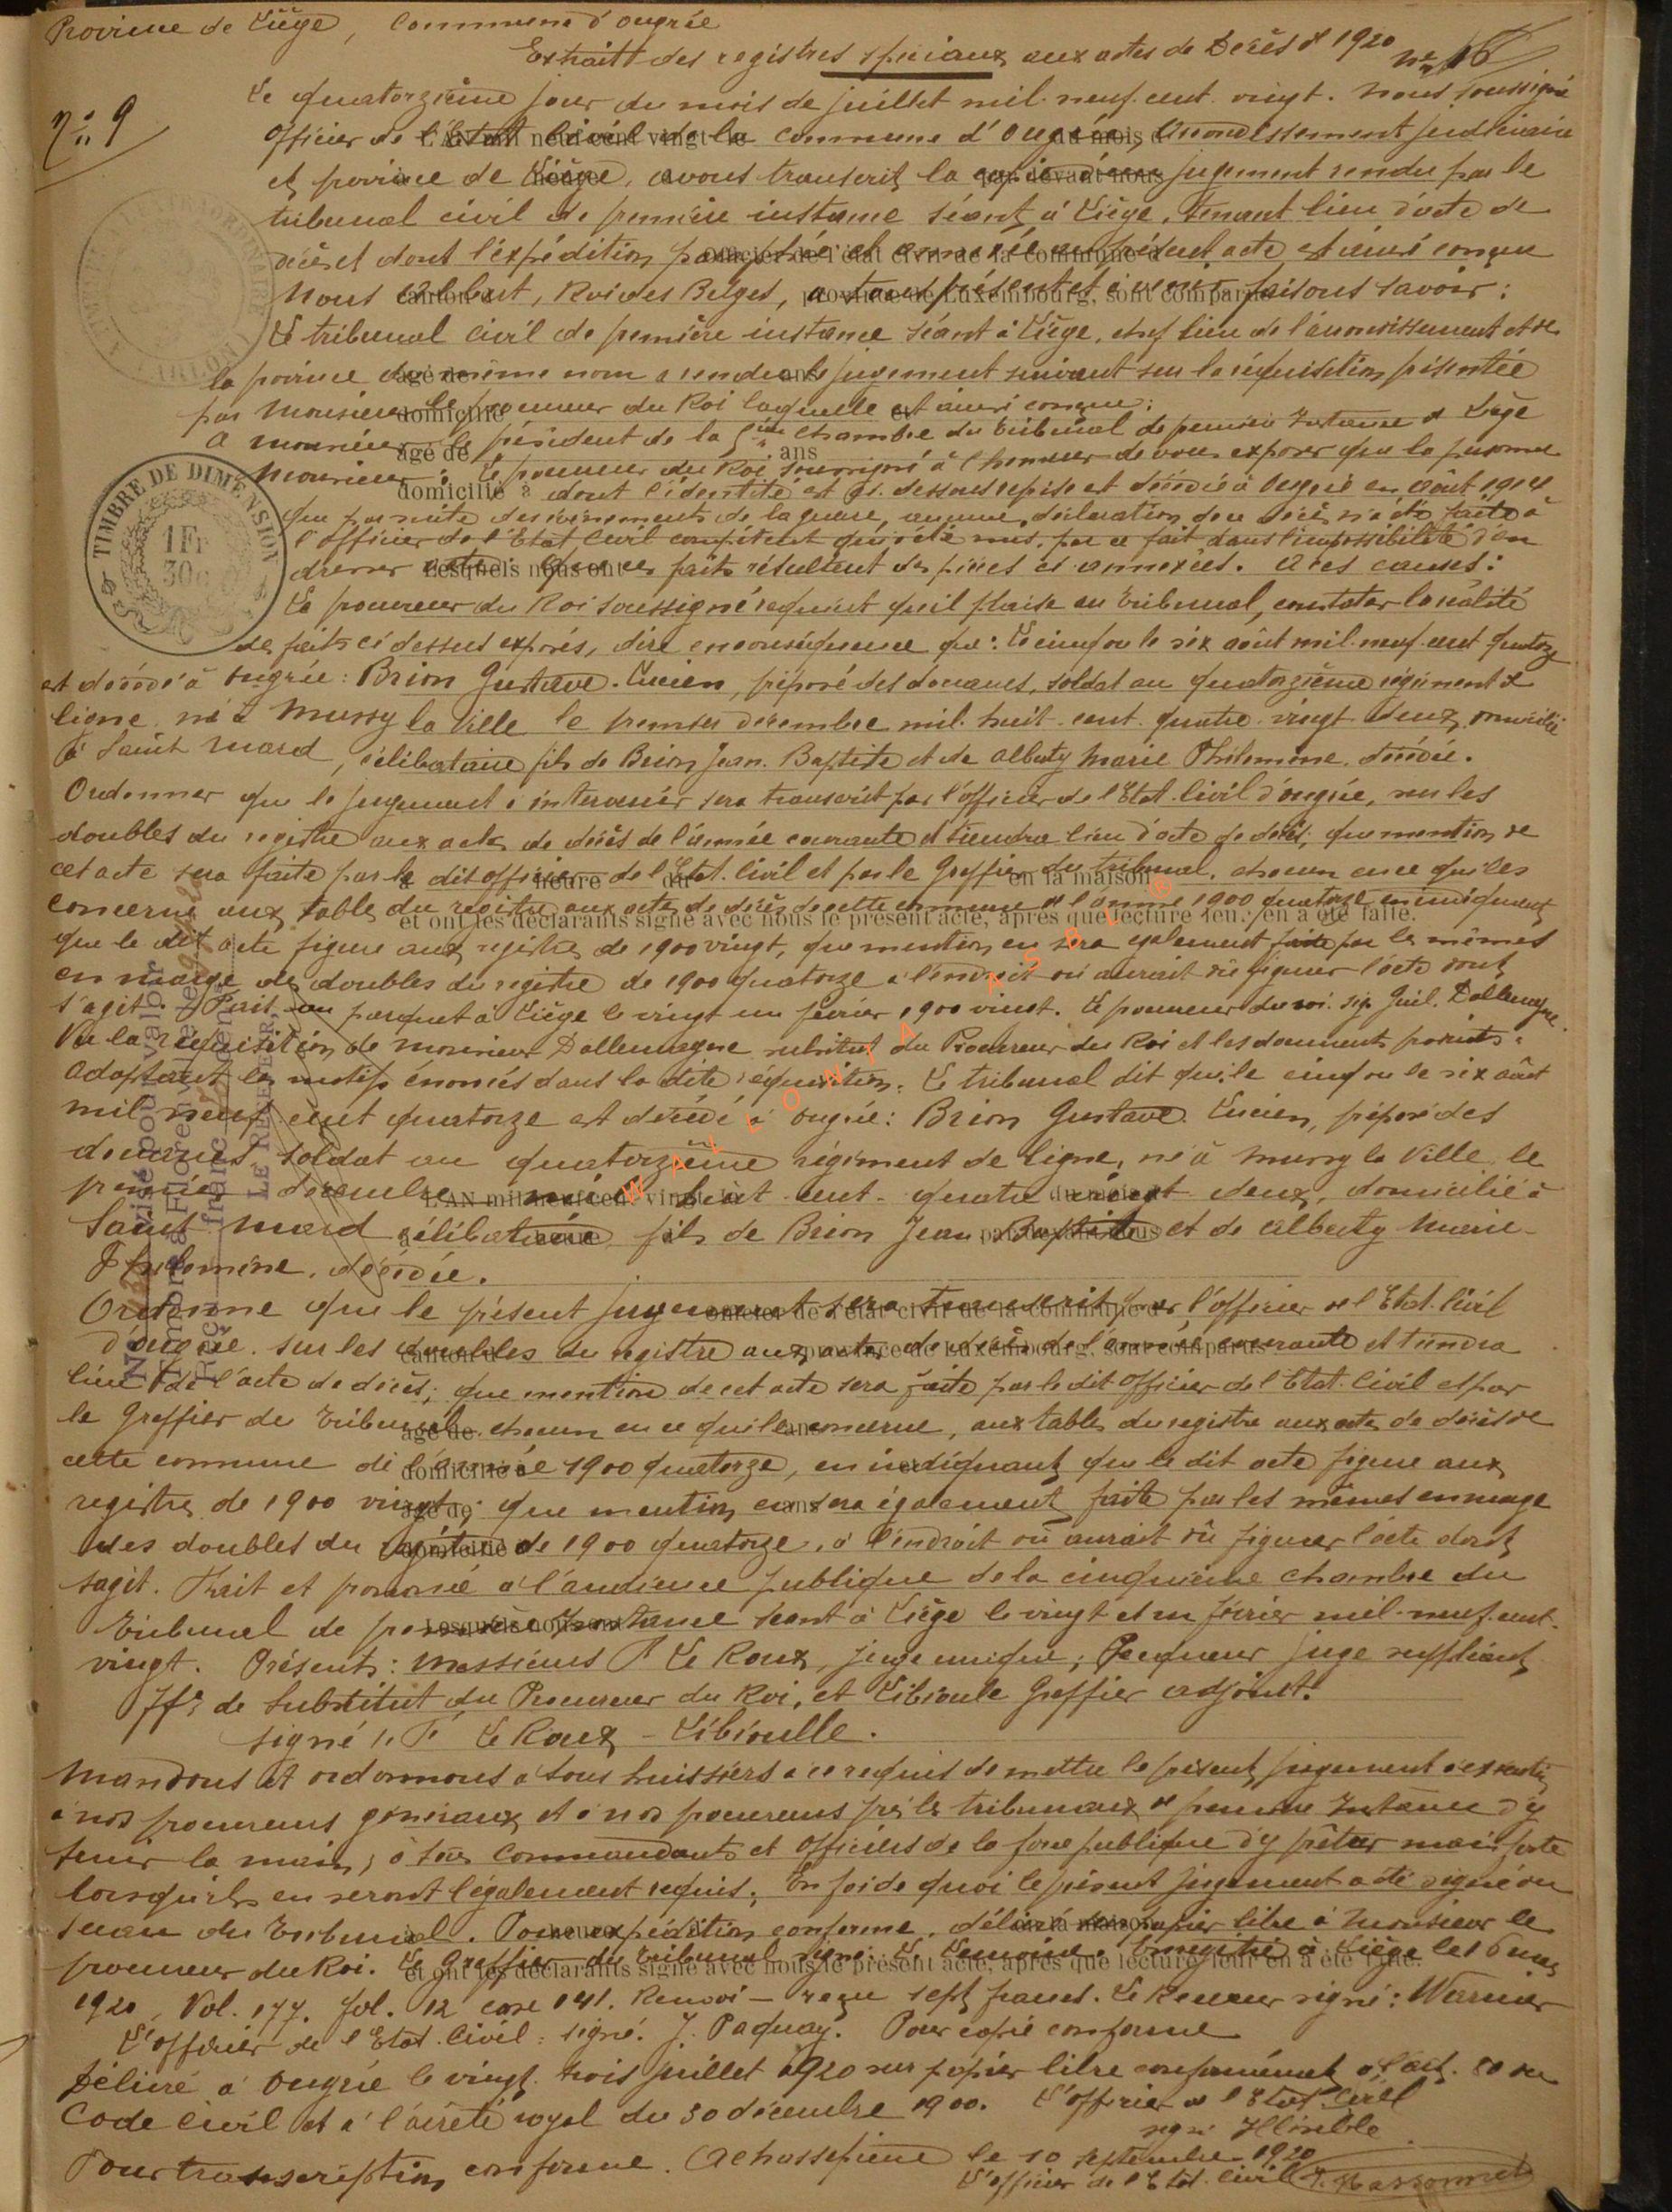 Province de Liège, Commune d'Ougrée
Extrait des registres spéciaux aux actes de Décès d 1920 n° 16
n° 9
Le quatorzième jour du mois de juillet mil. neuf. cent. vingt. Nous soussigné
officier de l'Etat civil de la commune d'Ougrée, Arrondissement judiciaire
et province de Liège, avons transcrit la copie d'un jugement rendu par le
tribunal civil de première instance séant à Liège, tenant lieu d'acte de
décès et dont l'expédition paraphée et annexée au présent acte est ainsi conçue
Nous Albert, Roi des Belges, à tous présents et à venir faisons savoir:
Le tribunal civil de première instance séant à Liège, chef lieu de l'arrondissement et de
la province du même nom a rendu le jugement suivant sur la réquisition présentée
par Monsieur le procureur du Roi laquelle est ainsi conçue:
A Monsieur le président de la 5ième Chambre du tribunal de première Instance d Liège
Monsieur: Le procureur du Roi soussigné à l'honneur de vous exposer que la personne
dont l'identité est ci. dessous reprise est décédée à Ougrée en août 1914
que par suite des évènements de la guerre, aucune déclaration de ce décès n'a été faite à
l'officier de l'Etat Civil compétent qui a été mis, par ce fait dans l'impossibilité d'en
dresser acte. Que ces faits résultent des pièces ci annexées. A ces causes:
Le procureur du Roi soussigné requiert qu'il plaise au tribunal, constater la réalité
des faits ci dessus exposés, dire en conséquence que: Le cinq ou le six août mil. neuf. cent quatorze
est décédé à Ougrée: Brion Gustave. Lucien, préposé des douanes, soldat au quatorzième régiment d
ligne, né à Mussy la Ville le premier décembre mil. huit. cent. quatre. vingt deux, domicilié
à Saint Mard, célibataire fils de Brion Jean. Baptiste et de Alberty Marie Philomène, décédée.
Ordonner que le jugement à intervenir sera transcrit par l'officier de l'Etat. Civil d'ougrée, sur les
doubles du registre aux actes de décès de l'année courante et tiendra lieu d'acte de décès; que mention de
cet acte sera faite par le dit officier de l'Etat. Civil et par le Greffier du tribunal, chacun en ce qui les
concerne aux tables du registre aux actes de décès de cette commune d l'année 1900 quatorze en indiquant
que le dit acte figure aux registres de 1900 vingt, que mention en sera également faite par les mêmes
en marge des doubles du registre de 1900 quatorze à l'endroit où aurait dû figurer l'acte dont
s'agit. Fait au parquet à Liège le vingt un février 1900 vingt. Le procureur du roi. sig. Guil. Dallemagne.
Vu la réquisition de Monsieur Dallemagne substitut du Procureur du Roi et les documents produits.
Adoptant les motifs énoncés dans la dite réquisition. Le tribunal dit que le cinq ou le six août
mil neuf cent quatorze est décédé à Ougrée: Brion Gustave. Lucien, préposé des
douanes soldat au quatorzième régiment de ligne, né à Mussy la Ville le
premier décembre mil huit cent. quatre vingt deux, domicilié à
Saint Mard célibataire, fils de Brion Jean Baptiste et de Alberty Marie
Philomène, décédée.
Ordonne que le présent jugement sera transcrit par l'officier de l'Etat. Civil
d'Ougrée. sur les doubles du registre aux actes de décès de l'année courante et tiendra
lieu de l'acte de décès; que mention de cet acte sera faite par le dit officier de l'Etat. Civil et par
le Greffier du tribunal chacun en ce qui le concerne, aux tables du registre aux actes de décès de
cette commune de l'année 1900 quatorze, en indiquant que le dit acte figure aux
registres de 1900 vingt; que mention en sera également faite par les mêmes en marge
des doubles du registre de 1900 quatorze, à l'endroit où aurait dû figurer l'acte dont
s'agit. Fait et prononcé à l'audience publique de la cinquième chambre du
tribunal de première Instance séant à Liège le vingt et un février mil. neuf. cent.
vingt. Présents: Messieurs P Le Roux, juge unique; Pecqueur juge suppléant
ff° de Substitut du Procureur du Roi, et Libioulle Greffier adjoint.
signé Le Roux - Libioulle.
Mandons et ordonnons à tous huissiers à ce requis de mettre le présent jugement à exécution
à nos procureurs généraux et à nos procureurs près les tribunaux d première Instance d'y
tenir la main, à tous Commandants et officiers de la force publique d'y prêter main forte
lorsqu'ils en seront légalement requis. En foi de quoi le présent jugement a été signé du
sceau du Tribunal. Pour expédition conforme, délivré sur papier libre à Monsieur le
procureur du Roi. Le Greffier du tribunal signé: L. Lemoine. Enregistré à Liège le 16 mars
1920, Vol. 177. fol. 12 case 141. Renvoi - reçu sept francs. Le Receveur signé: Warnier
L'officier de l'Etat. Civil: signé. J. Paquay. Pour copie conforme
Délivré à Ougrée le vingt. trois juillet 1920 sur papier libre conformément à l'art. 80 du
Code Civil et à l'arrêté royal du 30 décembre 1900. L'officier d l'Etat Civil
signé
Pour transcription conforme. A le 10 septembre 1920
L'officier de l'Etat. Civil
TIMBRE DE DIMENSION
1Fr
30c
L'AN mil neuf cent vingt le du mois d
heure par devant nous
officier de l'état civil de la commune d
canton d province de Luxembourg, sont comparus
âgé de ans
domicilié à et
âgé de ans
domicilié à
Lesquels nous ont
à heure du en la maison
et ont les déclarants signé avec nous le présent acte, après que lecture leur en a été faite.
L'AN mil neuf cent vingt le du mois d
à heure par devant nous
officier de l'état civil de la commune d
canton d province de Luxembourg, sont comparus
âgé de ans
domicilié à et
âgé de ans
domicilié à
Lesquels nous ont
à heure du en la maison
et ont les déclarants signé avec nous le présent acte, après que lecture leur en a été faite.
LE RECEVEUR,
WALLONIA ASBL ©